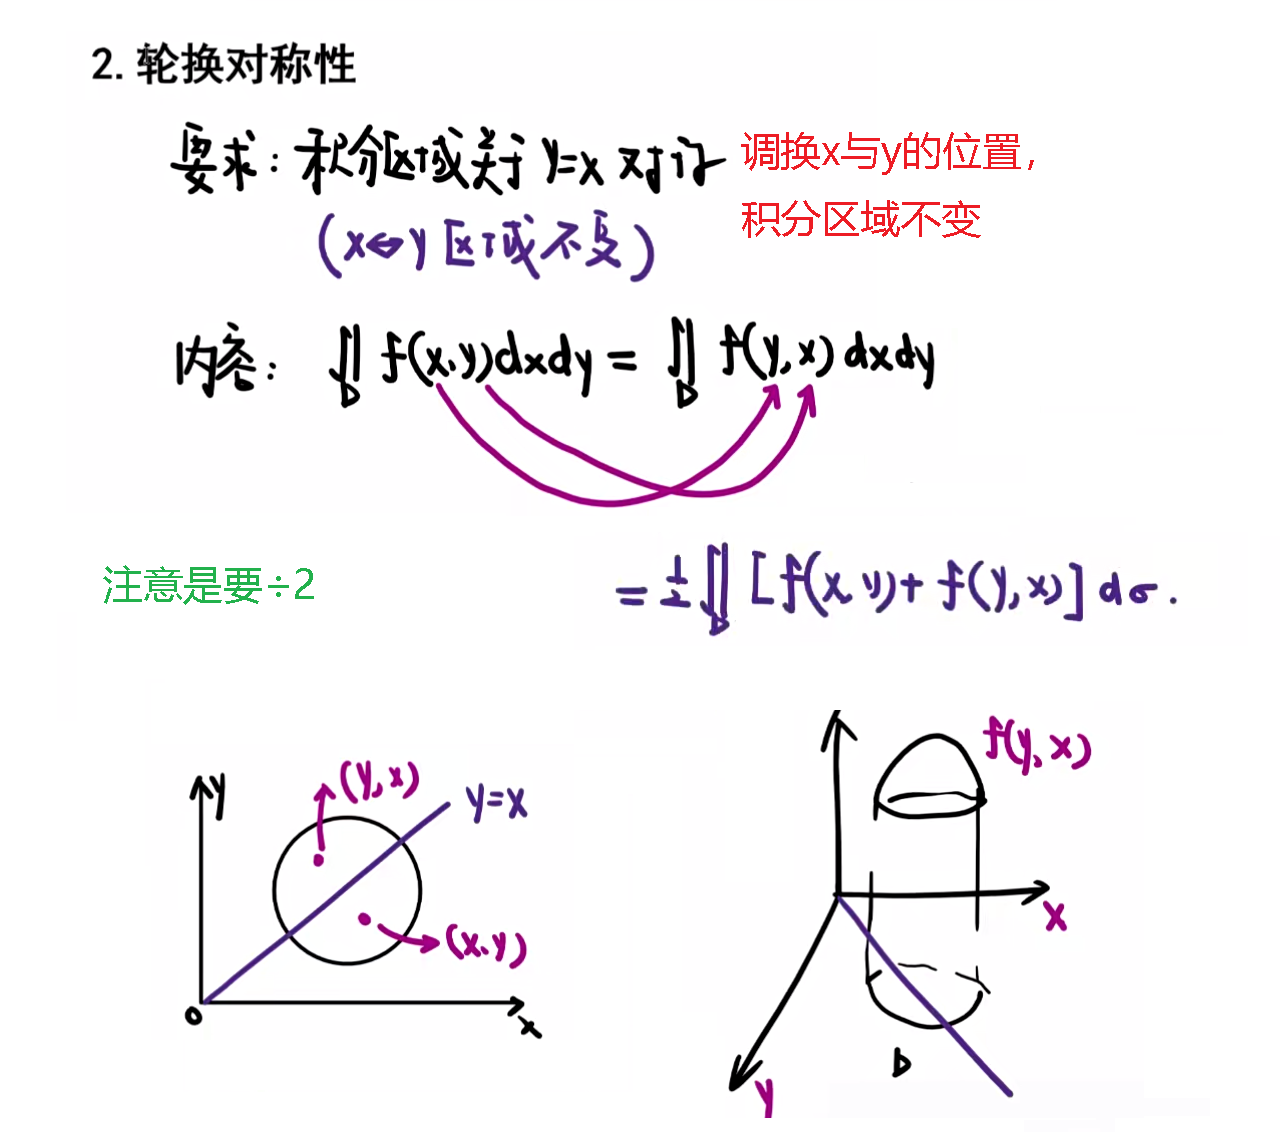 2. 轮换对称性
要求：积分区域关于 y=x 对称 调换x与y的位置，
(x⇔y 区域不变) 积分区域不变
内容：∬_D f(x,y)dxdy = ∬_D f(y,x) dxdy
注意是要÷2 = 1/2 ∬_D [f(x,y)+f(y,x)] dσ.
y (y,x) y=x
(x,y)
0 x
f(y,x)
x
D
y